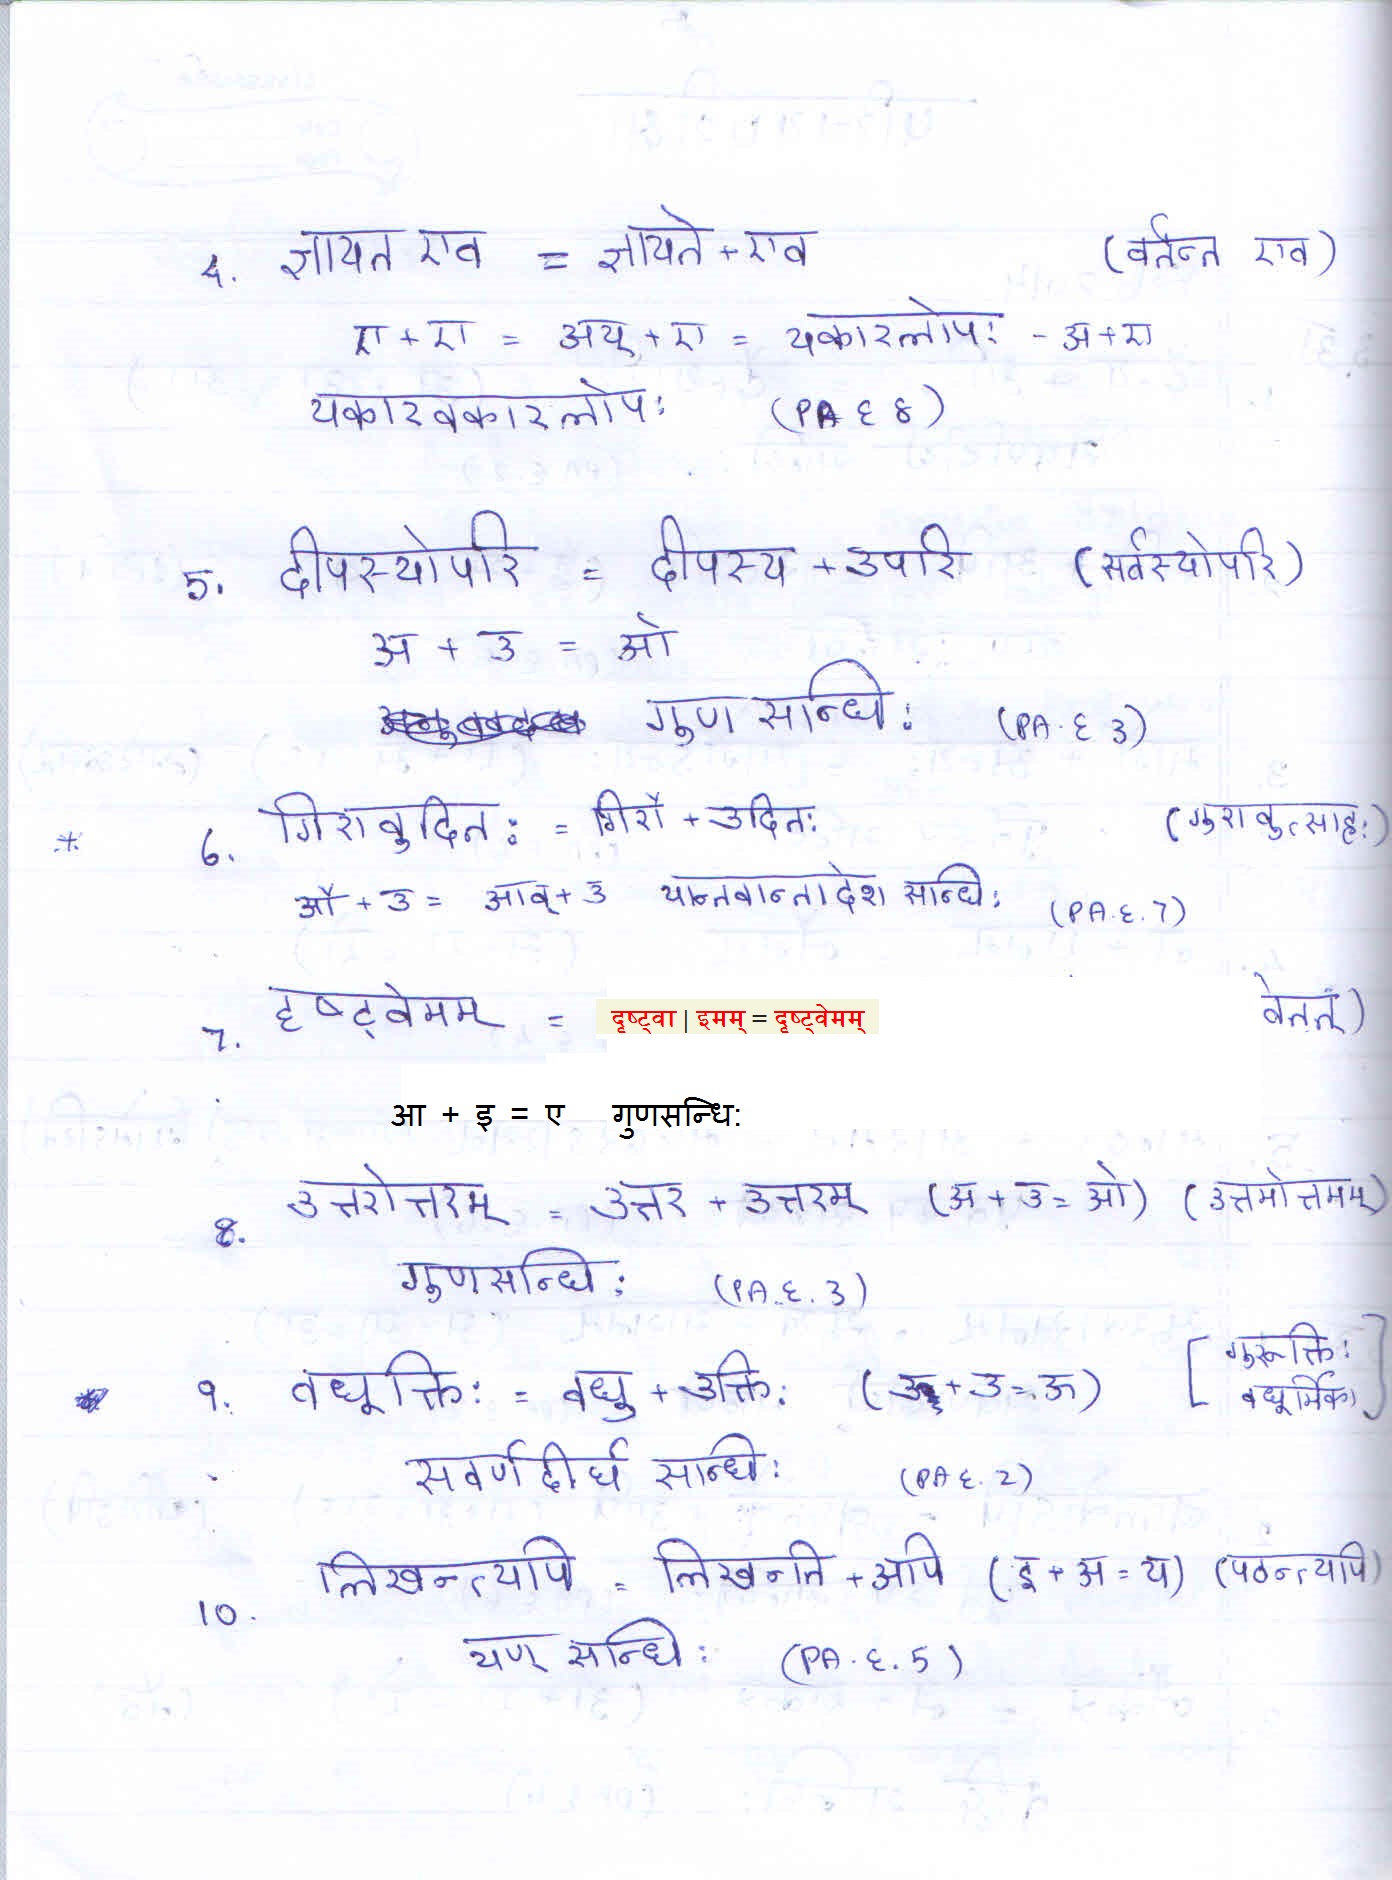 4. ज्ञायत एव = ज्ञायते + एव (वर्तन्त एव)
ए + ए = अय् + ए = यकारलोपः - अ + ए
यकारवकारलोपः (PA ६ ४)
5. दीपस्योपरि = दीपस्य + उपरि (सर्वस्योपरि)
अ + उ = ओ
गुण सन्धिः (PA. ६ 3)
* 6. गिरावुदितः = गिरौ + उदितः (गुरावुत्साहः)
औ + उ = आव् + उ यान्तवान्तादेश सन्धिः (PA. ६. 7)
7. दृष्ट्वेमम् = दृष्ट्वा | इमम् = दृष्ट्वेमम्
आ + इ = ए गुणसन्धिः
8. उत्तरोत्तरम् = उत्तर + उत्तरम् (अ + उ = ओ) (उत्तमोत्तमम्)
गुणसन्धिः (PA. ६. 3)
९. वधूक्तिः = वधु + उक्तिः ( + उ = ऊ) [गुरूक्तिः
वधूर्मिका]
सवर्णदीर्घ सन्धिः (PA ६. 2)
10. लिखन्त्यपि = लिखन्ति + अपि (इ + अ = य) (पठन्त्यपि)
यण् सन्धिः (PA. ६. 5)